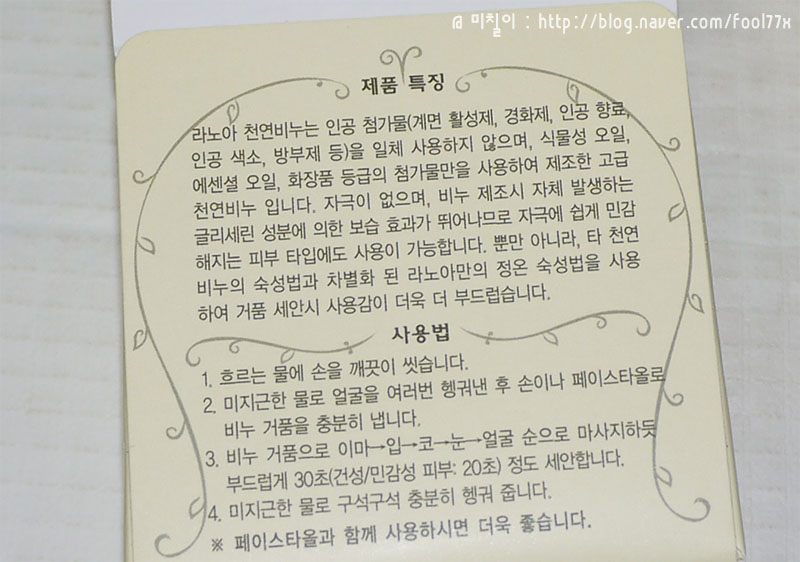 @ 미칠이 : http://blog.naver.com/fool77x
제품 특징
라노아 천연비누는 인공 첨가물(계면 활성제, 경화제, 인공 향료,
인공 색소, 방부제 등)을 일체 사용하지 않으며, 식물성 오일,
에센셜 오일, 화장품 등급의 첨가물만을 사용하여 제조한 고급
천연비누 입니다. 자극이 없으며, 비누 제조시 자체 발생하는
글리세린 성분에 의한 보습 효과가 뛰어나므로 자극에 쉽게 민감
해지는 피부 타입에도 사용이 가능합니다. 뿐만 아니라, 타 천연
비누의 숙성법과 차별화 된 라노아만의 정온 숙성법을 사용
하여 거품 세안시 사용감이 더욱 더 부드럽습니다.
사용법
1. 흐르는 물에 손을 깨끗이 씻습니다.
2. 미지근한 물로 얼굴을 여러번 헹궈낸 후 손이나 페이스타올로
비누 거품을 충분히 냅니다.
3. 비누 거품으로 이마→입→코→눈→얼굴 순으로 마사지하듯
부드럽게 30초(건성/민감성 피부: 20초) 정도 세안합니다.
4. 미지근한 물로 구석구석 충분히 헹궈 줍니다.
※ 페이스타올과 함께 사용하시면 더욱 좋습니다.